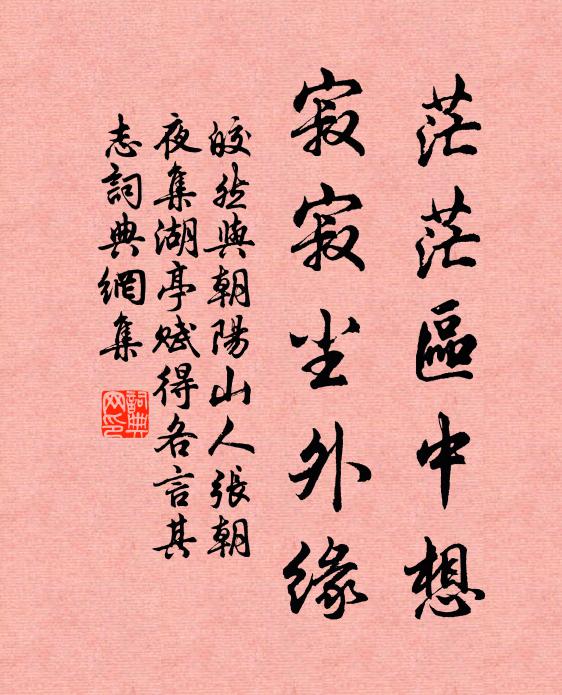 茫茫區中想
寂寂尘外緣
皎然與朝陽山人張朝
夜集湖亭赋得各言其
志詞典網集
詞典
网印